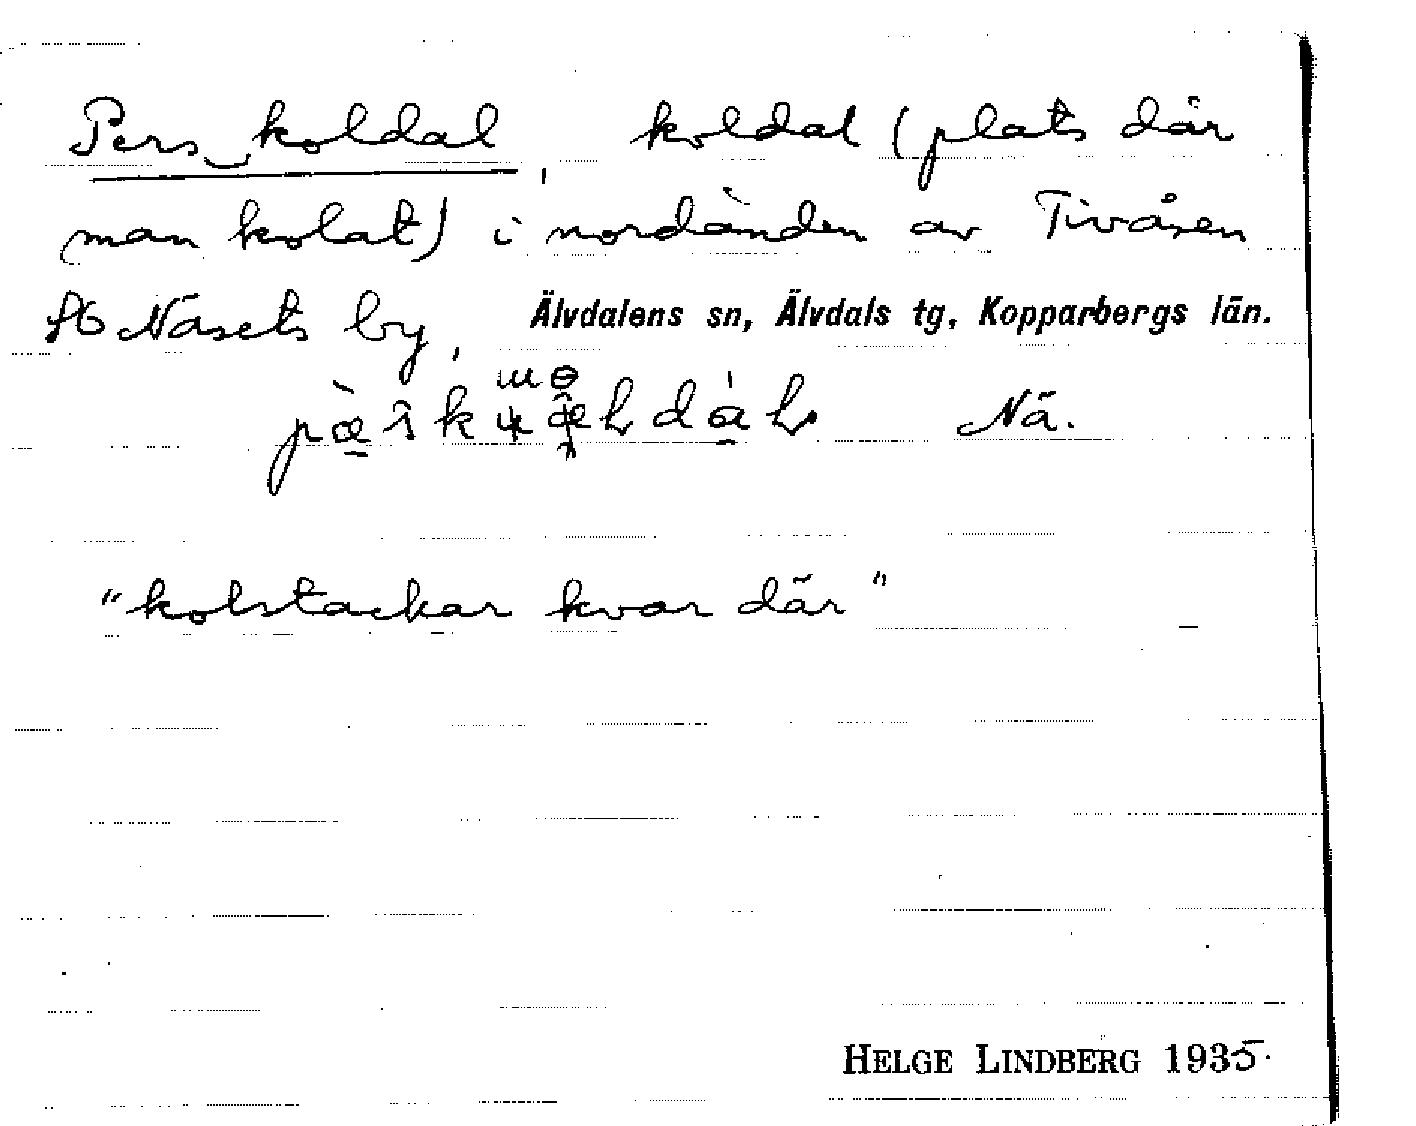 Pers‿koldal, koldal (plats där
man kolat) i nordänden av Tivåsen
Näsets by, Älvdalens sn, Älvdals tg, Kopparbergs län.
Nä.
"kolstackar kvar där"
HELGE LINDBERG 1935.